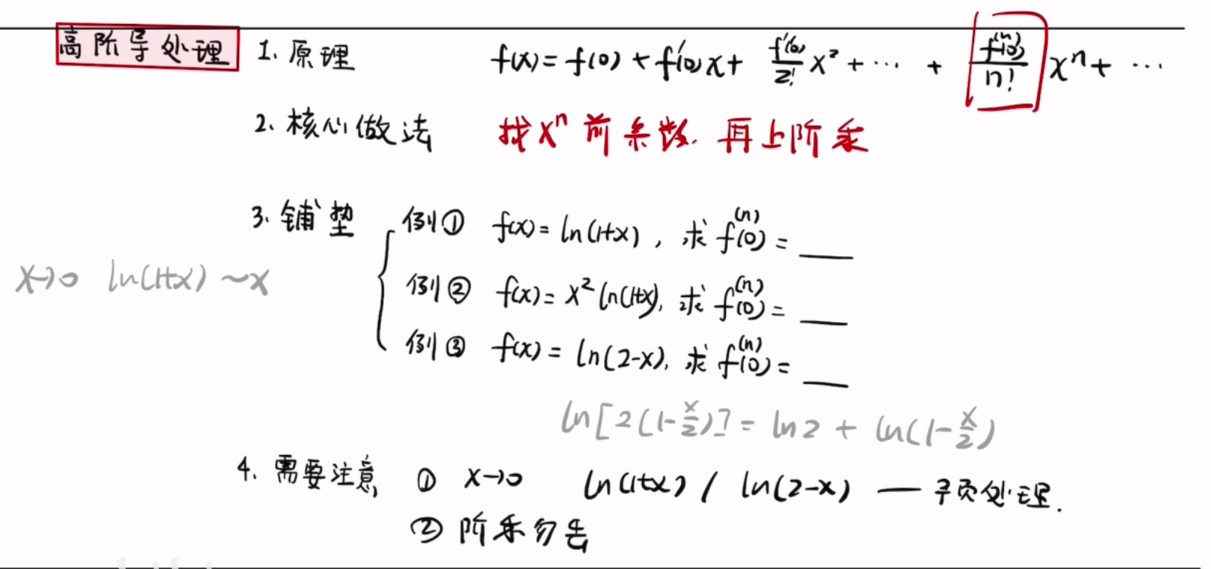 高阶导处理 1. 原理 f(x)=f(0)+f'(0)x+ f''(0)/2! x² + ⋯ + f⁽ⁿ⁾(0)/n! xⁿ+ ⋯
2. 核心做法 找xⁿ前系数. 再上阶乘
3. 铺垫 例① f(x)=ln(1+x), 求f⁽ⁿ⁾(0)=___
x→0 ln(1+x)~x
例② f(x)=x²ln(1+x), 求f⁽ⁿ⁾(0)=___
例③ f(x)=ln(2-x), 求f⁽ⁿ⁾(0)=___
ln[2(1-x/2)]=ln2+ln(1-x/2)
4. 需要注意 ① x→0 ln(1+x) / ln(2-x) — 处理.
② 阶乘勿丢